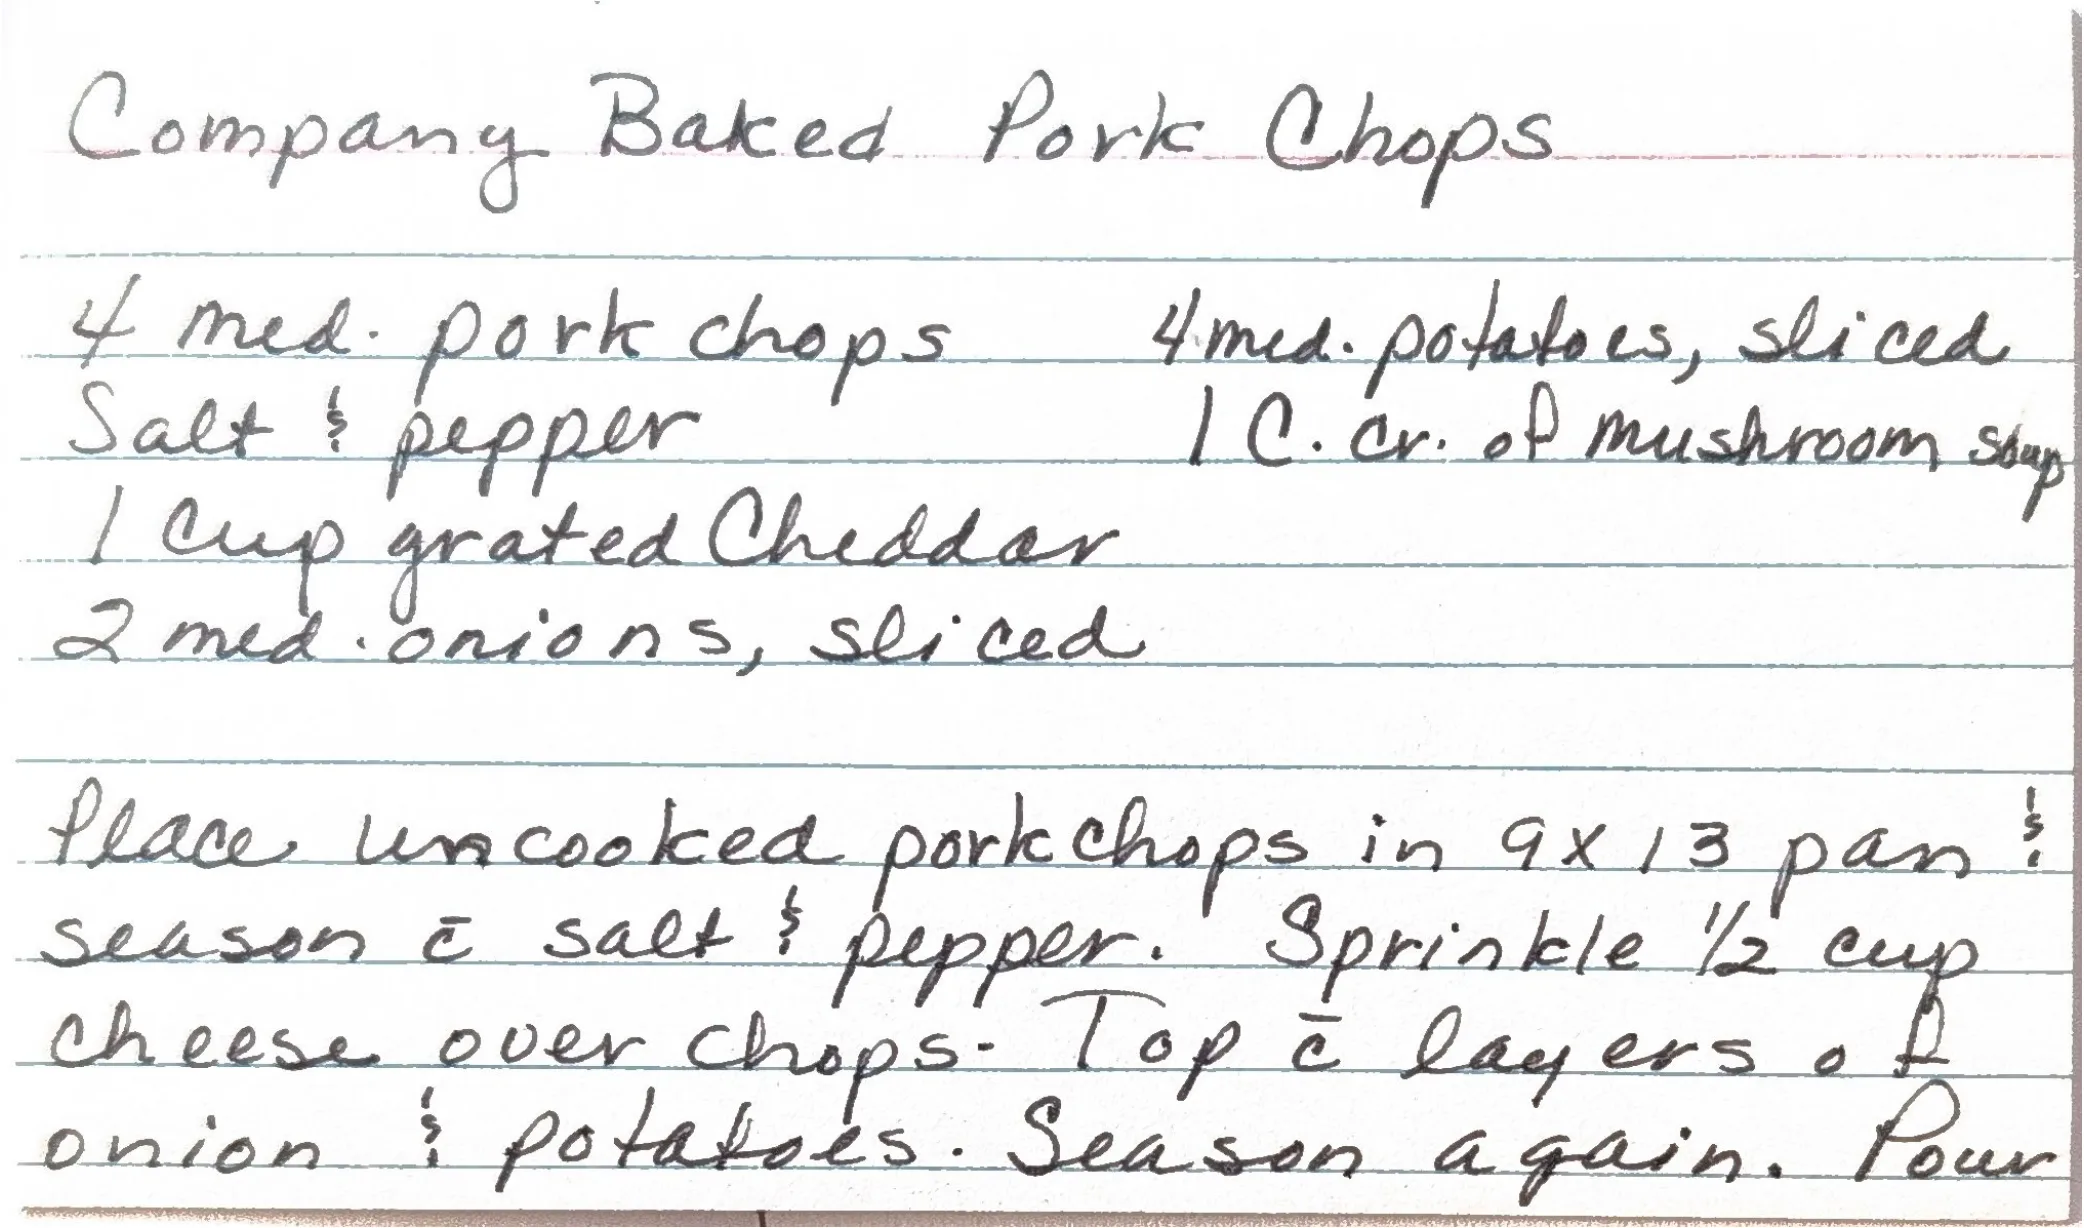 Company Baked Pork Chops
4 med. pork chops 4 med. potatoes, sliced
Salt & pepper 1 C. cr. of mushroom soup
1 cup grated Cheddar
2 med. onions, sliced
Place uncooked pork chops in 9x13 pan &
season c̄ salt & pepper. Sprinkle 1/2 cup
cheese over chops. Top c̄ layers of
onion & potatoes. Season again. Pour